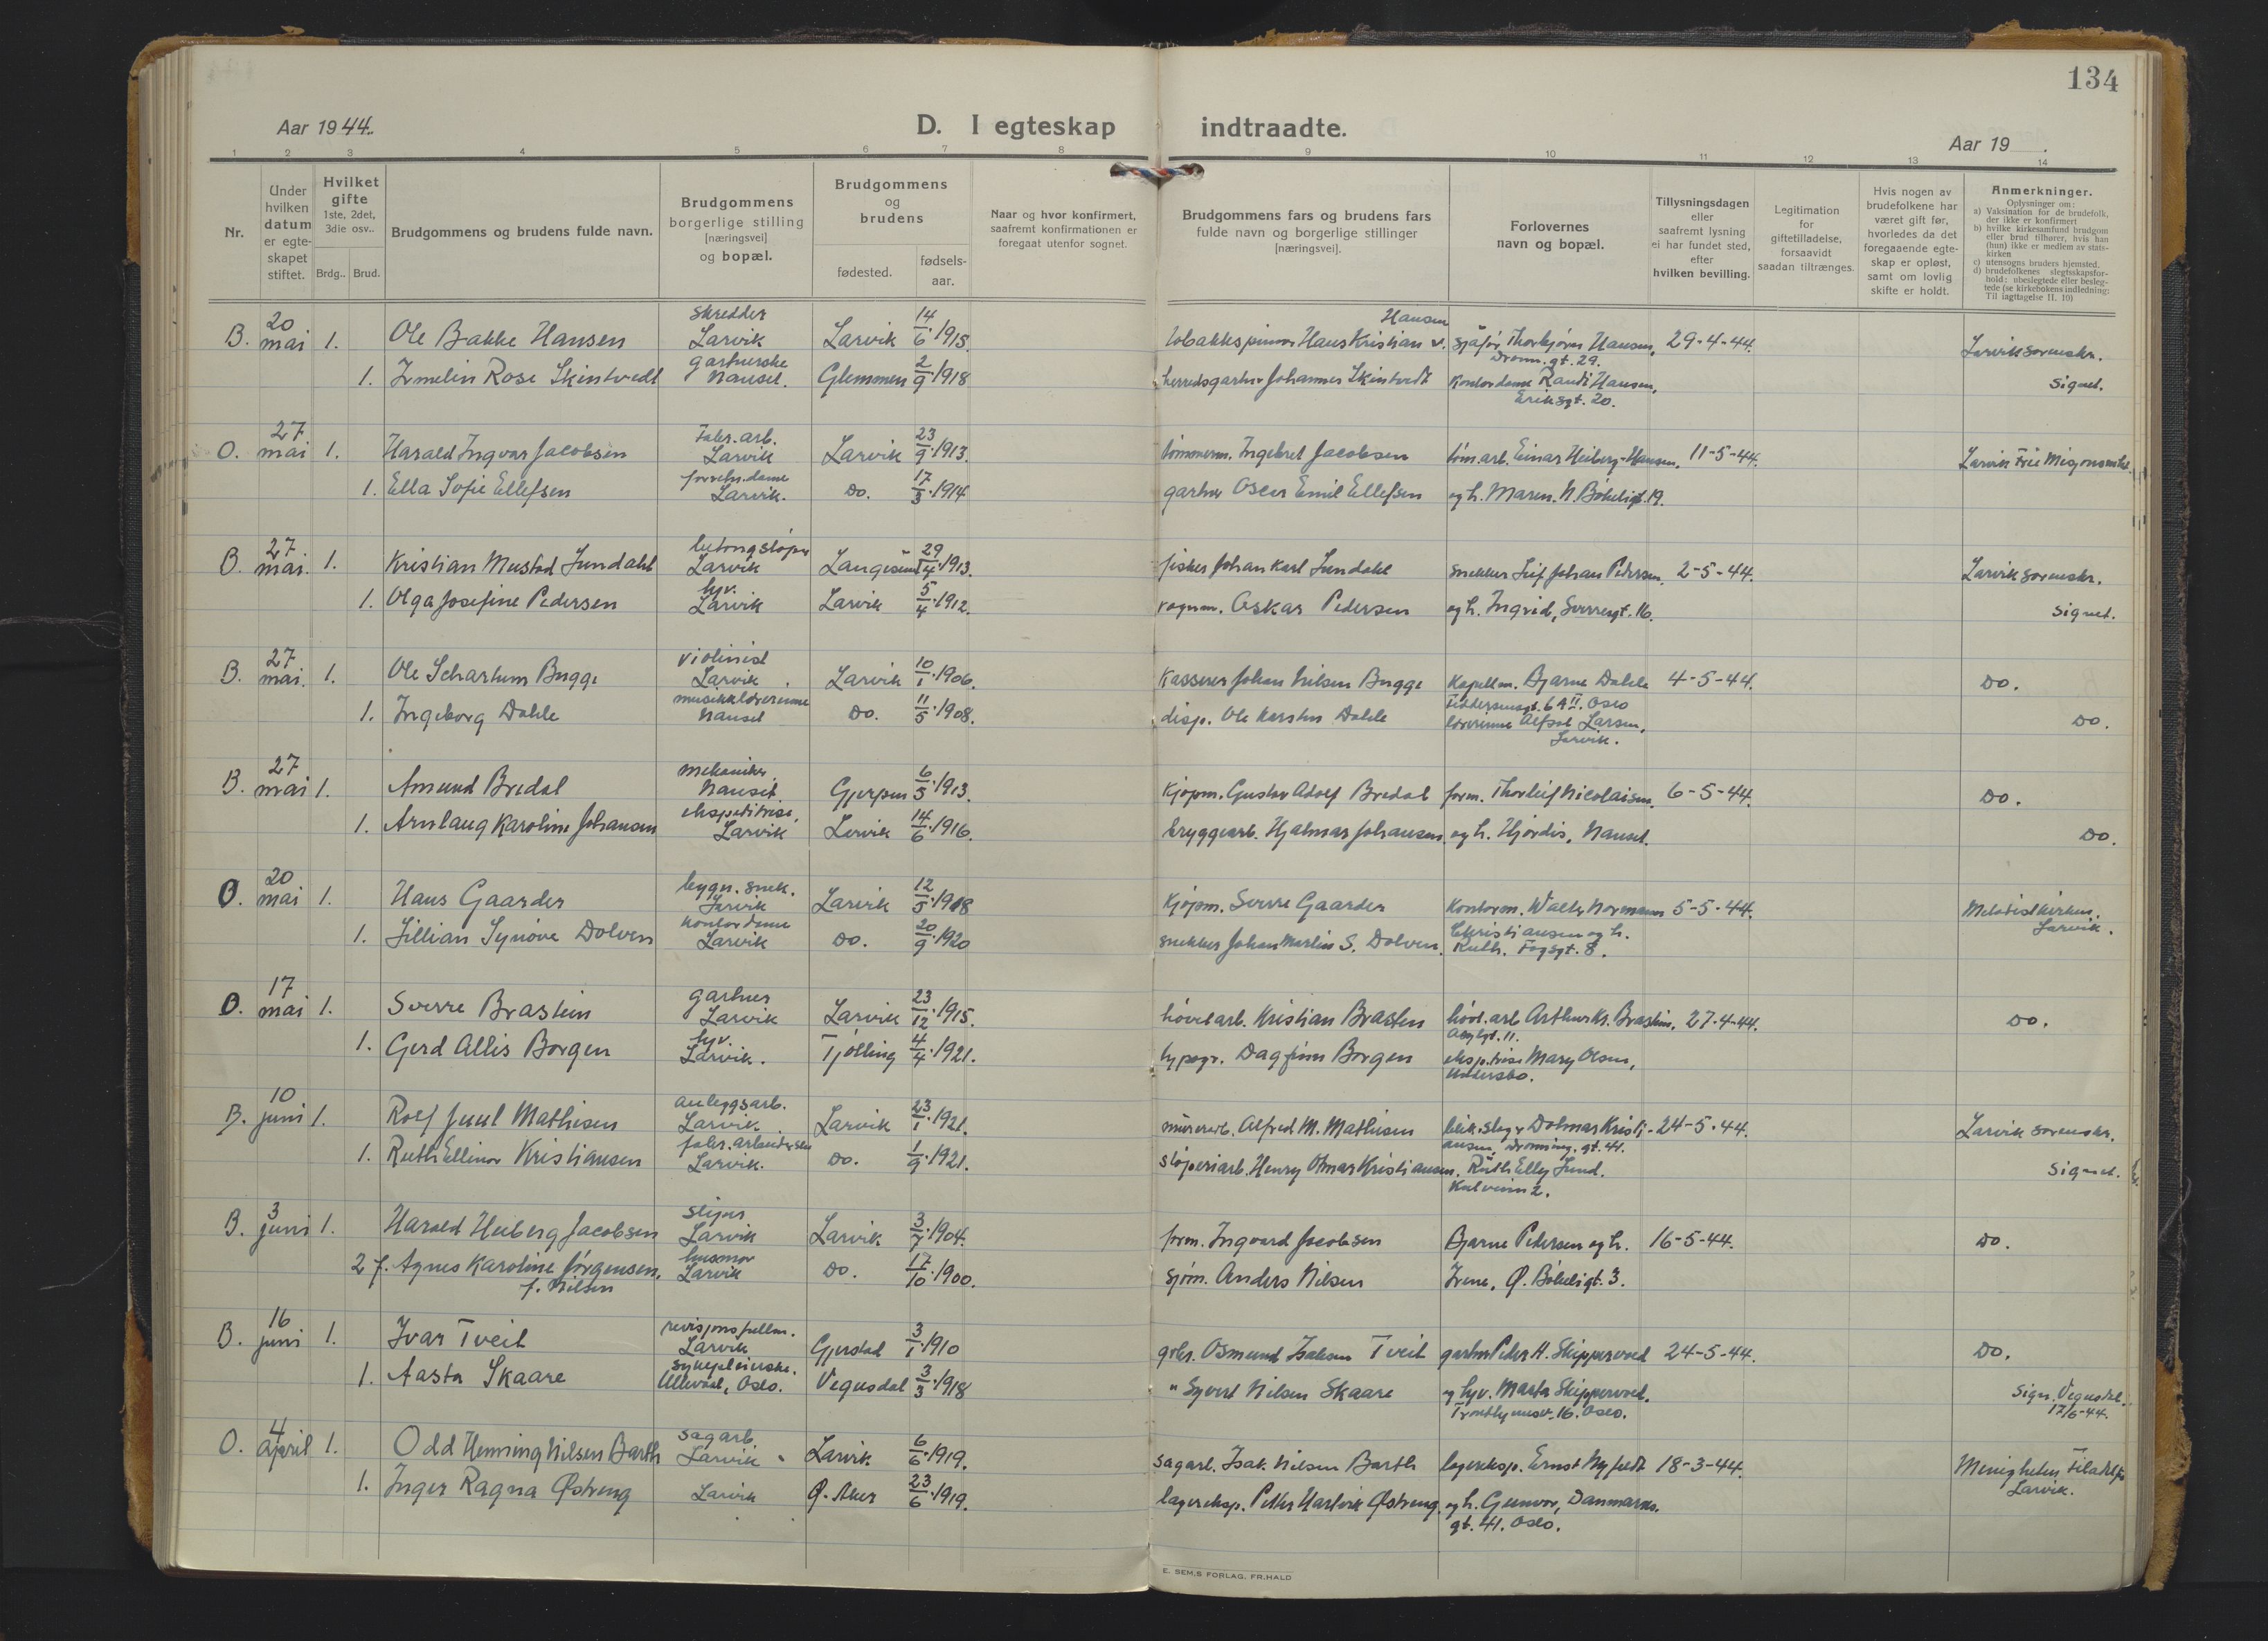 134
Aar 1944.
D. I egteskap indtraadte.
Aar 19 .
1 2 3 4 5 6 7 8 9 10 11 12 13 14
Nr.
Under hvilken datum er egteskapet stiftet.
Hvilket gifte 1ste, 2det, 3die osv..
Brdg.. Brud.
Brudgommens og brudens fulde navn.
Brudgommens borgerlige stilling [næringsvei] og bopæl.
Brudgommens og brudens
fødested.
fødsels-aar.
Naar og hvor konfirmert, saafremt konfirmationen er foregaat utenfor sognet.
Brudgommens fars og brudens fars fulde navn og borgerlige stillinger [næringsvei].
Forlovernes navn og bopæl.
Tillysningsdagen eller saafremt lysning ei har fundet sted, efter hvilken bevilling.
Legitimation for giftetilladelse, forsaavidt saadan tiltrænges.
Hvis nogen av brudefolkene har været gift før, hvorledes da det foregaaende egteskap er opløst, samt om lovlig skifte er holdt.
Anmerkninger.
Oplysninger om:
a) Vaksination for de brudefolk, der ikke er konfirmert
b) hvilke kirkesamfund brudgom eller brud tilhører, hvis han (hun) ikke er medlem av statskirken
c) utensogns bruders hjemsted.
d) brudefolkenes slegtsskapsforhold: ubeslegtede eller beslegtede (se kirkebokens indledning: Til iagttagelse II. 10)
B. 20 mai 1. Ole Bakke Hansen skredder Larvik Larvik 14/6.1915. tobakkspinner Hans Kristian Hansen sjåfør Thorbjørn Hansen, Dronn.gt. 29. 29-4-44. Larvik sorenskr.
1. Irmelin Rose Skintvedt gartnerske Nanset. Glemmen 2/9.1918 herredsgartner Johannes Skintvedt kontordame Randi Hansen, Eriksgt. 20. signet.
O. 27 mai 1. Harald Ingvar Jacobsen Fabr.arb. Larvik Larvik 23/9.1913. tømmerm. Ingebret Jacobsen tøm.arb. Einar Heiberg-Hansen, 11-5-44. Larvik Frie Misjonsmenh.
1. Ella Sofie Ellefsen forretn.dame Larvik. Do. 17/3.1914 gartner Oscar Emil Ellefsen og h. Maren. N. Bøkeligt. 19.
B. 27 mai. 1. Kristian Mustad Lundahl betongstøper Larvik Langesund 29/4.1913. fisker Johan Karl Lundahl snekker Leif Johan Pedersen, 2-5-44. Larvik sorenskr.
1. Olga Josefine Pedersen hv. Larvik Larvik 5/4.1912. vognm. Oskar Pedersen og h. Ingrid, Sverresgt. 16. signet.
B. 27 mai. 1. Ole Schartum Bugge violinist Larvik Larvik 10/1.1906. Kasserer Johan Nilsen Bugge Kapellm. Bjarne Dahle 4-5-44. Do.
1. Ingeborg Dahle musikklærerinne Nanset Do. 11/5.1908. disp. Ole Karsten Dahle Fiddersensgt. 6 A II. Oslo lærerinne Alfsol Larsen, Larvik. Do.
B. 27 mai 1. Amund Bredal mekaniker. Nanset Gjerpen 6/5.1913. Kjøpm. Gustav Adolf Bredal form. Thorleif Nicolaisen. 6-5-44. Do.
1. Arnlaug Karoline Johansen ekspeditrise, Larvik Larvik 14/6.1916. bryggearb. Hjalmar Johansen. og h. Hjørdis, Nanset. Do.
O. 20 mai 1. Hans Gaarder bygn.snek. Larvik Larvik 12/5.1918 Kjøpm. Sverre Gaarder Kontorm. Walter Normann 5-5-44. Metodistkirken. Larvik.
1. Lillian Synøve Dolven kontordame Larvik Do. 20/9.1920 snekker Johan Martin S. Dolven. Christiansen og h. Ruth. Fogsgt. 8.
O. 17 mai 1. Sverre Brastein gartner Larvik Larvik 23/12.1915. høvelarb. Kristian Brasten høvl.arb Arthur Kr. Brastein, 27-4-44. Do.
1. Gerd Allis Borgen hv. Larvik. Tjølling 4/4.1921. typogr. Dagfinn Borgen eksp.trise Mary Olsen, Undersbo.
B. 10 juni 1. Rolf Juul Mathisen anleggsarb. Larvik Larvik 23/1.1921. murerarb. Alfred M. Mathisen Dolmar Kristiansen, Dronning.gt. 44. 24-5-44. Larvik sorenskr.
1. Ruth Ellinor Kristiansen fabr.arbeiderske Larvik. Do. 1/9.1921. støperiarb. Henry Otmar Kristiansen. Ruth Elly Lund. Kulveien 2. signet.
B. 3 juni 1. Harald Heiberg Jacobsen sliper Larvik Larvik 3/7.1904. form. Ingvard Jacobsen Bjarne Pedersen og h. 16-5-44. Do.
2 f. Agnes Karoline Jørgensen, f. Nilsen husmor Larvik Do. 17/10.1900. sjøm. Anders Nilsen Irene, Ø. Bøkeligt. 3.
B. 16 juni 1. Ivar Tveit revisjonsfullm. Larvik Gjerstad 3/1.1910 gbr. Osmund Isaksen Tveit gartner Peder H. Skippervoed 24-5-44. Do.
1. Aasta Skaare sykepleierske. Ullevaal, Oslo. Vegusdal 3/3.1918 " Syvert Nilsen Skaare og hv. Marta Skippervoed. 16. Oslo. Sign. Vegusdal. 17/6-44.
O. 4 april 1. Odd Henning Nilsen Barth sagarb Larvik Larvik 6/6.1919. sagarb. Isak Nilsen Barth lagereksp. Ernst Nyfeldt 18-3-44. Menigheten Filadelfia Larvik.
1. Inger Ragna Østreng Larvik Ø. Aker 23/6.1919. lagereksp. Petter Hartvik Østreng. og h. Gunvor, Danmarks.gt. 41. Oslo.
E. SEM,S FORLAG. FR.HALD